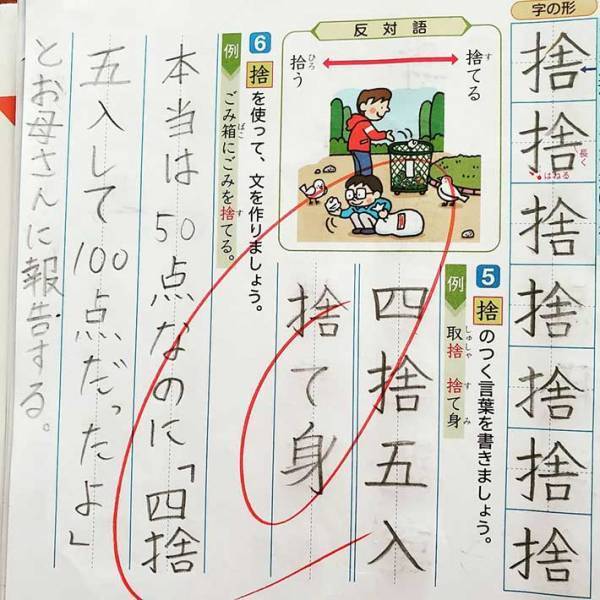 字の形
捨
捨
長く
はねる
捨
捨
捨
捨
捨
反対語
捨てる
す
拾う
ひろ
5
捨のつく言葉を書きましょう。
例
取捨 捨て身
しゅしゃ す み
四捨五入
捨て身
6
捨を使って、文を作りましょう。
例
ごみ箱にごみを捨てる。
ばこ す
本当は50点なのに「四捨
五入して100点だったよ」
とお母さんに報告する。